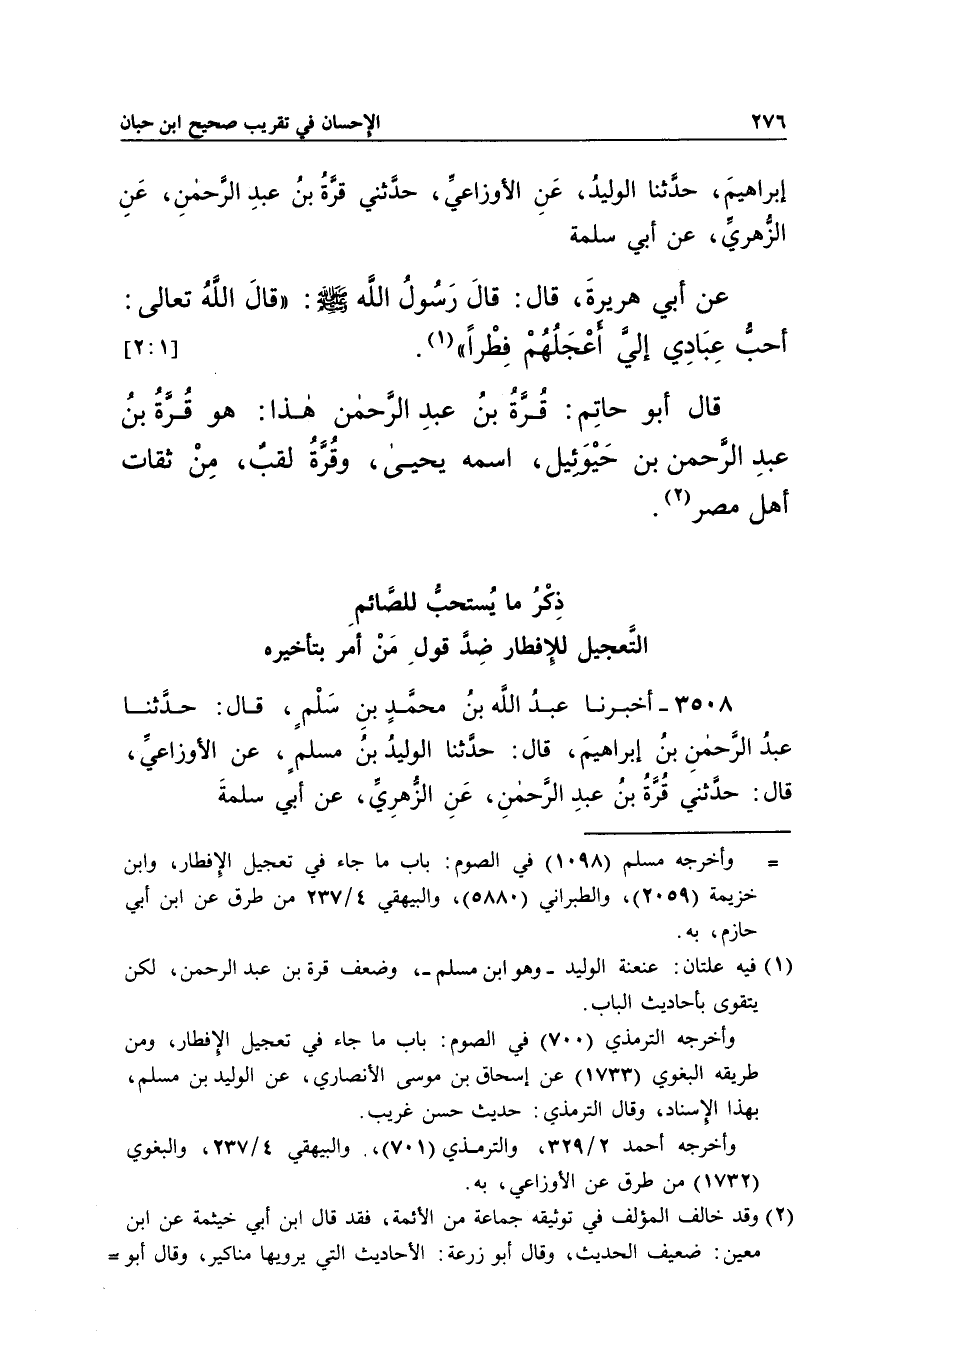 ٢٧٦ الإحسان في تقريب صحيح ابن حبان
إبراهيمَ، حدَّثنا الوليدُ، عَنِ الأوزاعيِّ، حدَّثني قرَّةُ بنُ عبدِ الرَّحمٰنِ، عَنِ
الزُّهريِّ، عن أبي سلمة
عن أبي هريرةَ، قال: قالَ رَسُولُ اللَّه ﷺ: «قالَ اللَّهُ تعالى:
أحبُّ عِبَادِي إليَّ أَعْجَلُهُمْ فِطْراً»(١). [٢:١]
قال أبو حاتِم: قُرَّةُ بنُ عبدِ الرَّحمٰن هٰذا: هو قُرَّةُ بنُ
عبدِ الرَّحمن بن حَيْوَئِيل، اسمه يحيىٰ، وقُرَّةُ لقبٌ، مِنْ ثقات
أهل مصر(٢).
ذِكْرُ ما يُستحبُّ للصَّائمِ
التَّعجيل للإفطار ضِدَّ قولِ مَنْ أمر بتأخيره
٣٥٠٨ ـ أخبرنا عبدُ اللَّه بنُ محمَّدِ بنِ سَلْمٍ، قال: حدَّثنا
عبدُ الرَّحمٰنِ بنُ إبراهيمَ، قال: حدَّثنا الوليدُ بنُ مسلمٍ، عن الأوزاعيِّ،
قال: حدَّثني قُرَّةُ بنُ عبدِ الرَّحمٰنِ، عَنِ الزُّهرِيِّ، عن أبي سلمةَ
= وأخرجه مسلم (١٠٩٨) في الصوم: باب ما جاء في تعجيل الإفطار، وابن
خزيمة (٢٠٥٩)، والطبراني (٥٨٨٠)، والبيهقي ٢٣٧/٤ من طرق عن ابن أبي
حازم، به.
(١) فيه علتان: عنعنة الوليد ـ وهو ابن مسلم ـ، وضعف قرة بن عبد الرحمن، لكن
يتقوى بأحاديث الباب.
وأخرجه الترمذي (٧٠٠) في الصوم: باب ما جاء في تعجيل الإفطار، ومن
طريقه البغوي (١٧٣٣) عن إسحاق بن موسى الأنصاري، عن الوليد بن مسلم،
بهذا الإسناد، وقال الترمذي: حديث حسن غريب.
وأخرجه أحمد ٣٢٩/٢، والترمذي (٧٠١)، والبيهقي ٢٣٧/٤، والبغوي
(١٧٣٢) من طرق عن الأوزاعي، به.
(٢) وقد خالف المؤلف في توثيقه جماعة من الأئمة، فقد قال ابن أبي خيثمة عن ابن
معين: ضعيف الحديث، وقال أبو زرعة: الأحاديث التي يرويها مناكير، وقال أبو =